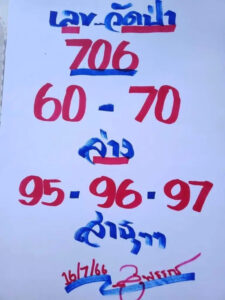 เลข วัดป่า
706
60 - 70
ล่าง
95 - 96 - 97
สาธุๆๆ
16/7/66